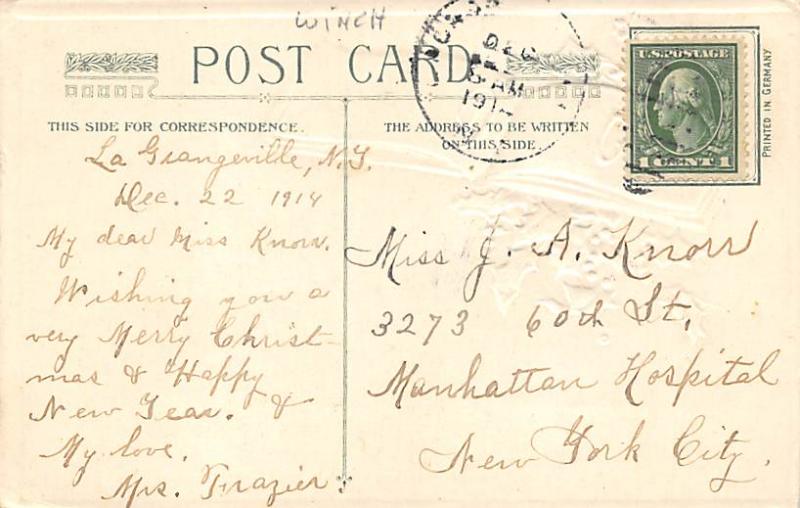 WINCH
POST CARD
THIS SIDE FOR CORRESPONDENCE.
La Grangeville, N.Y.
Dec. 22 1914
My dear Miss Knorr.
Wishing you a
very Merry Christ-
mas & Happy
New Year. &
My love.
Mrs. Frazier
THE ADDRESS TO BE WRITTEN
ON THIS SIDE.
DEC
AM
U.S. POSTAGE
1 CENT 1
PRINTED IN GERMANY
Miss J. A. Knorr
3273 60th St,
Manhattan Hospital
New York City.